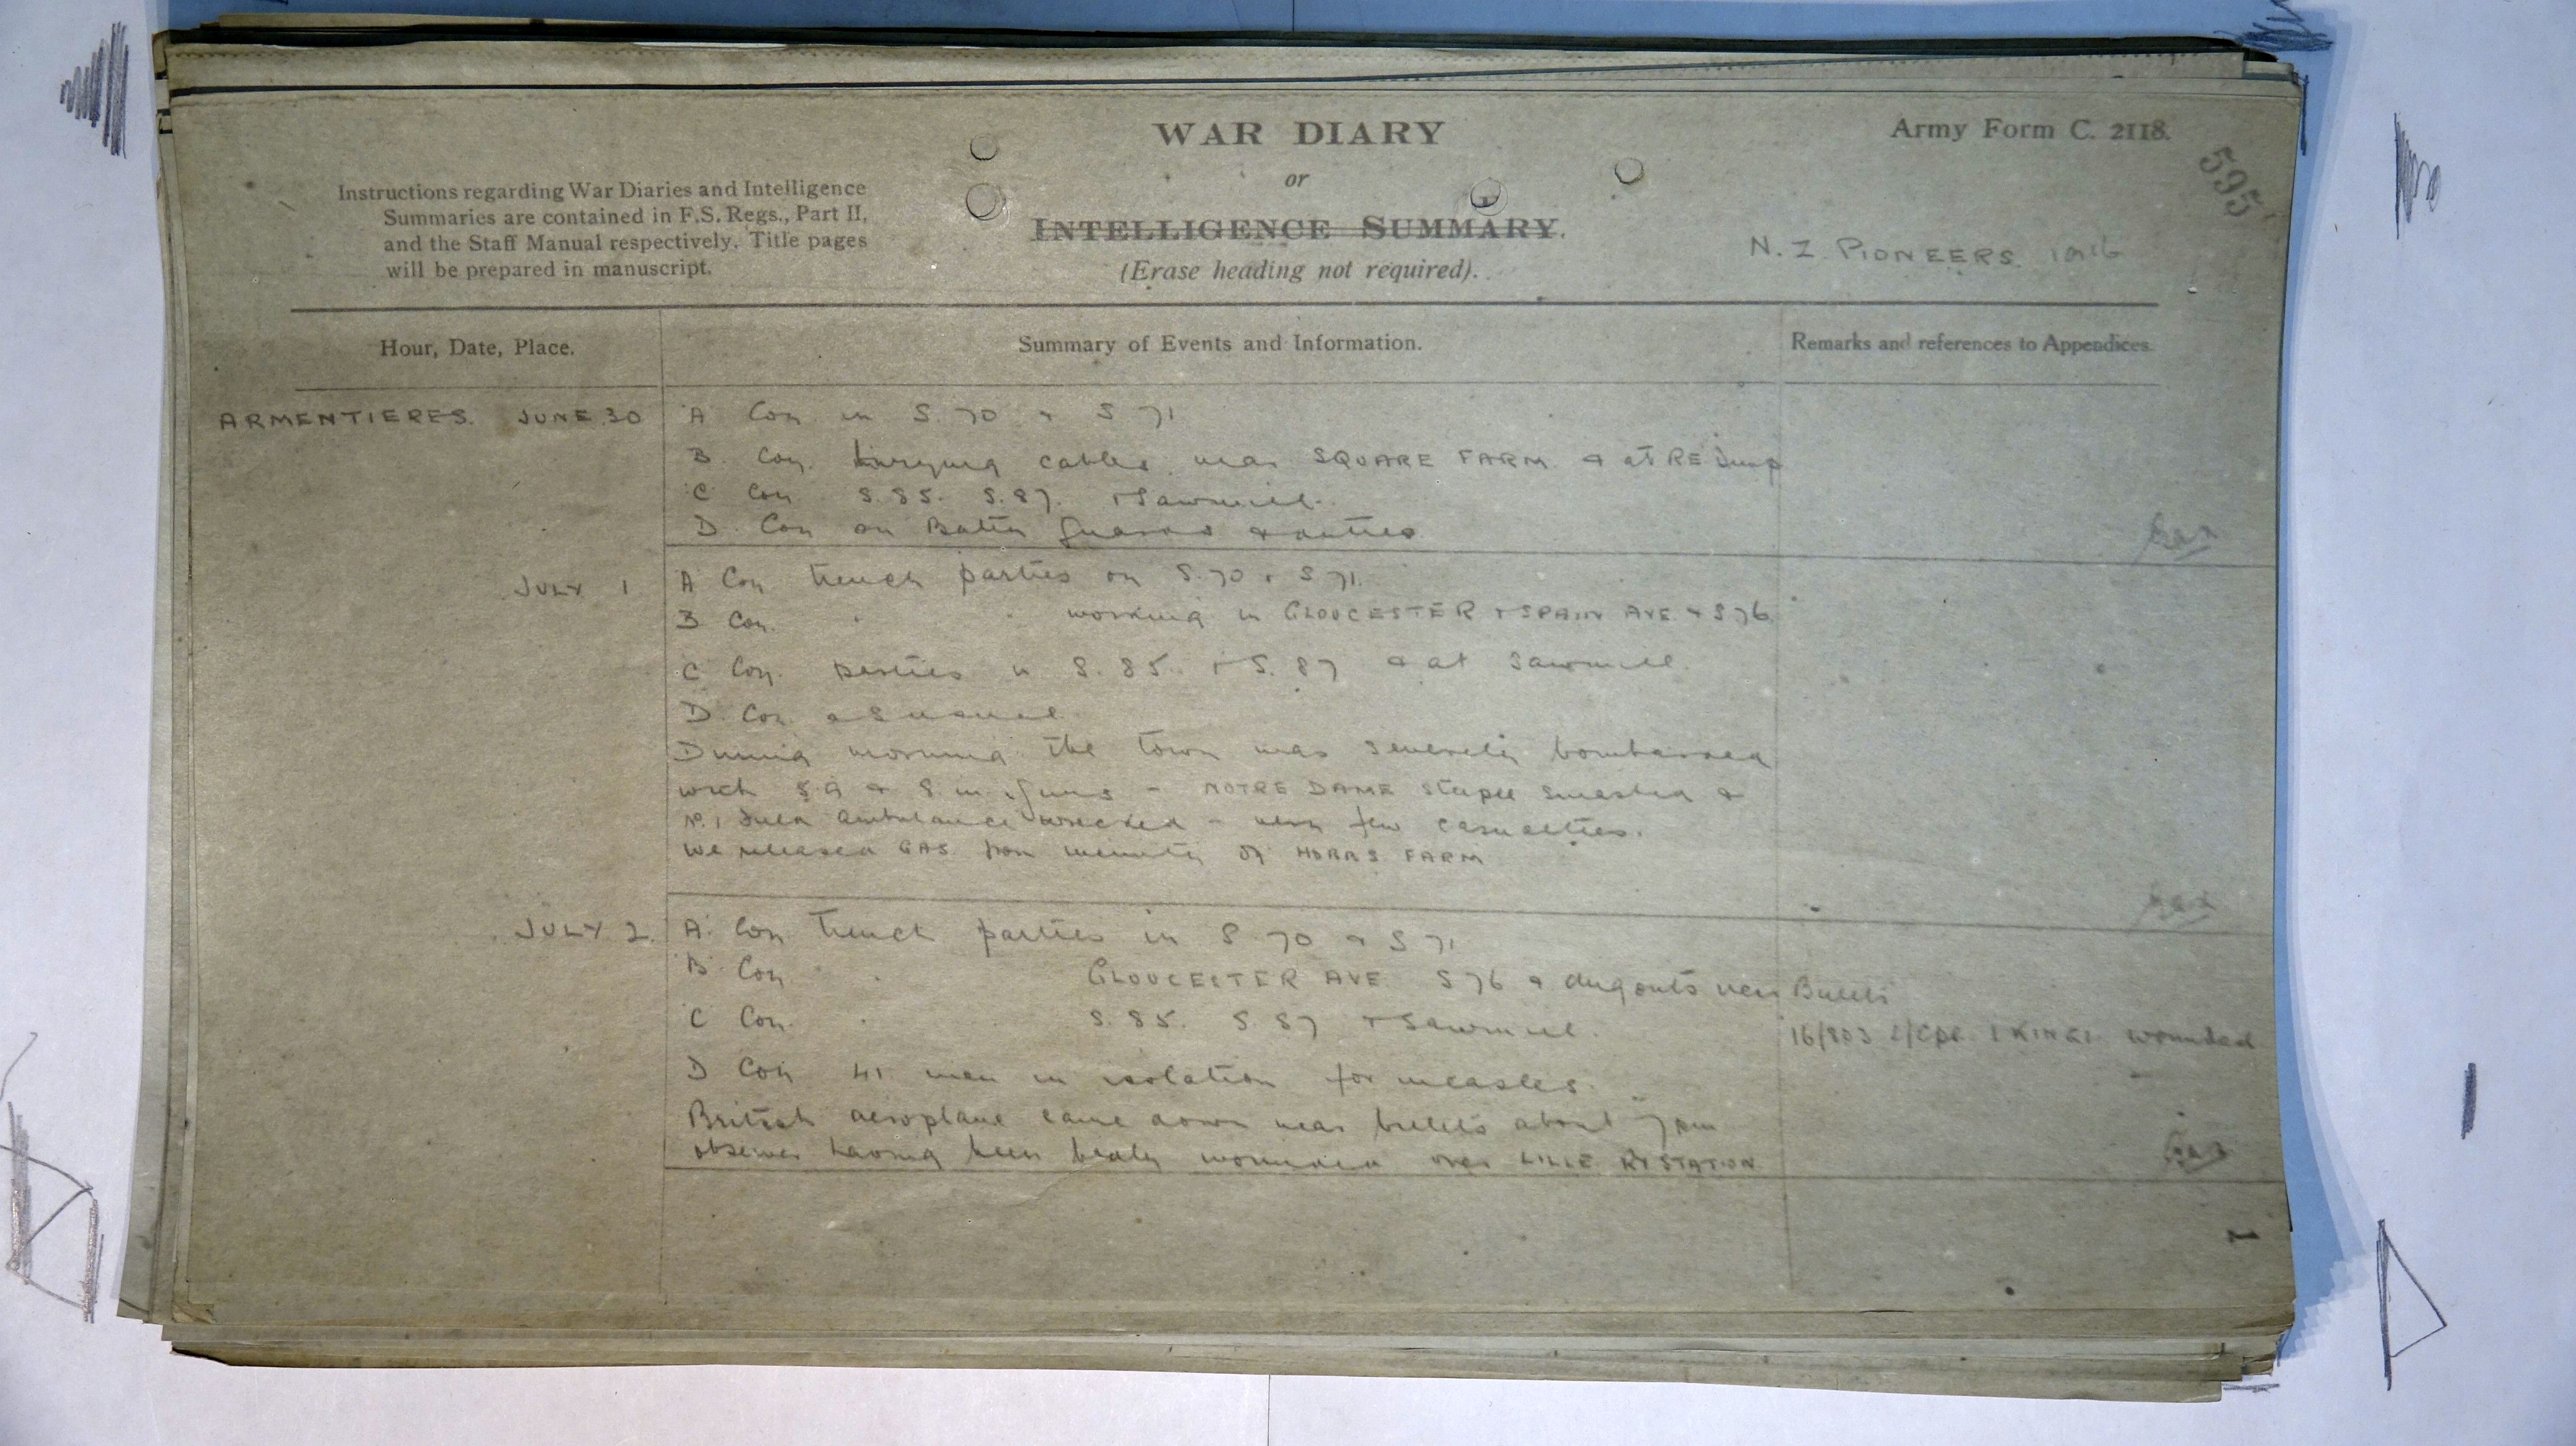 WAR DIARY
or
INTELLIGENCE SUMMARY.
(Erase heading not required).
Army Form C. 2118.
595
Instructions regarding War Diaries and Intelligence
Summaries are contained in F.S. Regs., Part II,
and the Staff Manual respectively. Title pages
will be prepared in manuscript.
N.Z PIONEERS 1916
Hour, Date, Place.
Summary of Events and Information.
Remarks and references to Appendices.
ARMENTIERES. JUNE.30
A Coy in S.70 & S 71
B. Coy. burying cables near SQUARE FARM. & at RE Dump
C Coy. S.85. S.87. & Sawmill.
D. Coy on Battn guards & duties
JULY 1
A Coy trench parties on S.70 & S 71.
B Coy. " " working in GLOUCESTER & SPAIN AVE & S 76.
C Coy. parties in S. 85. & S. 87 & at Sawmill.
D. Coy. as usual.
During morning the town was severely bombarded
with 5.9 & 8. in guns - NOTRE DAME steeple smashed &
No. 1 Field Ambulance wrecked - very few casualties.
We released GAS from vicinity of HOBBS FARM
JULY 2.
A. Coy trench parties in S 70 & S 71
B Coy " GLOUCESTER AVE. S 76 & dugouts near Billets
C Coy. " S. 85. S. 87 & Sawmill.
16/803 L/Cpl. I KINGI wounded
D Coy 41 men in isolation for measles.
British aeroplane came down near billets about 7 pm
observer having been badly wounded over LILLE RY STATION
1